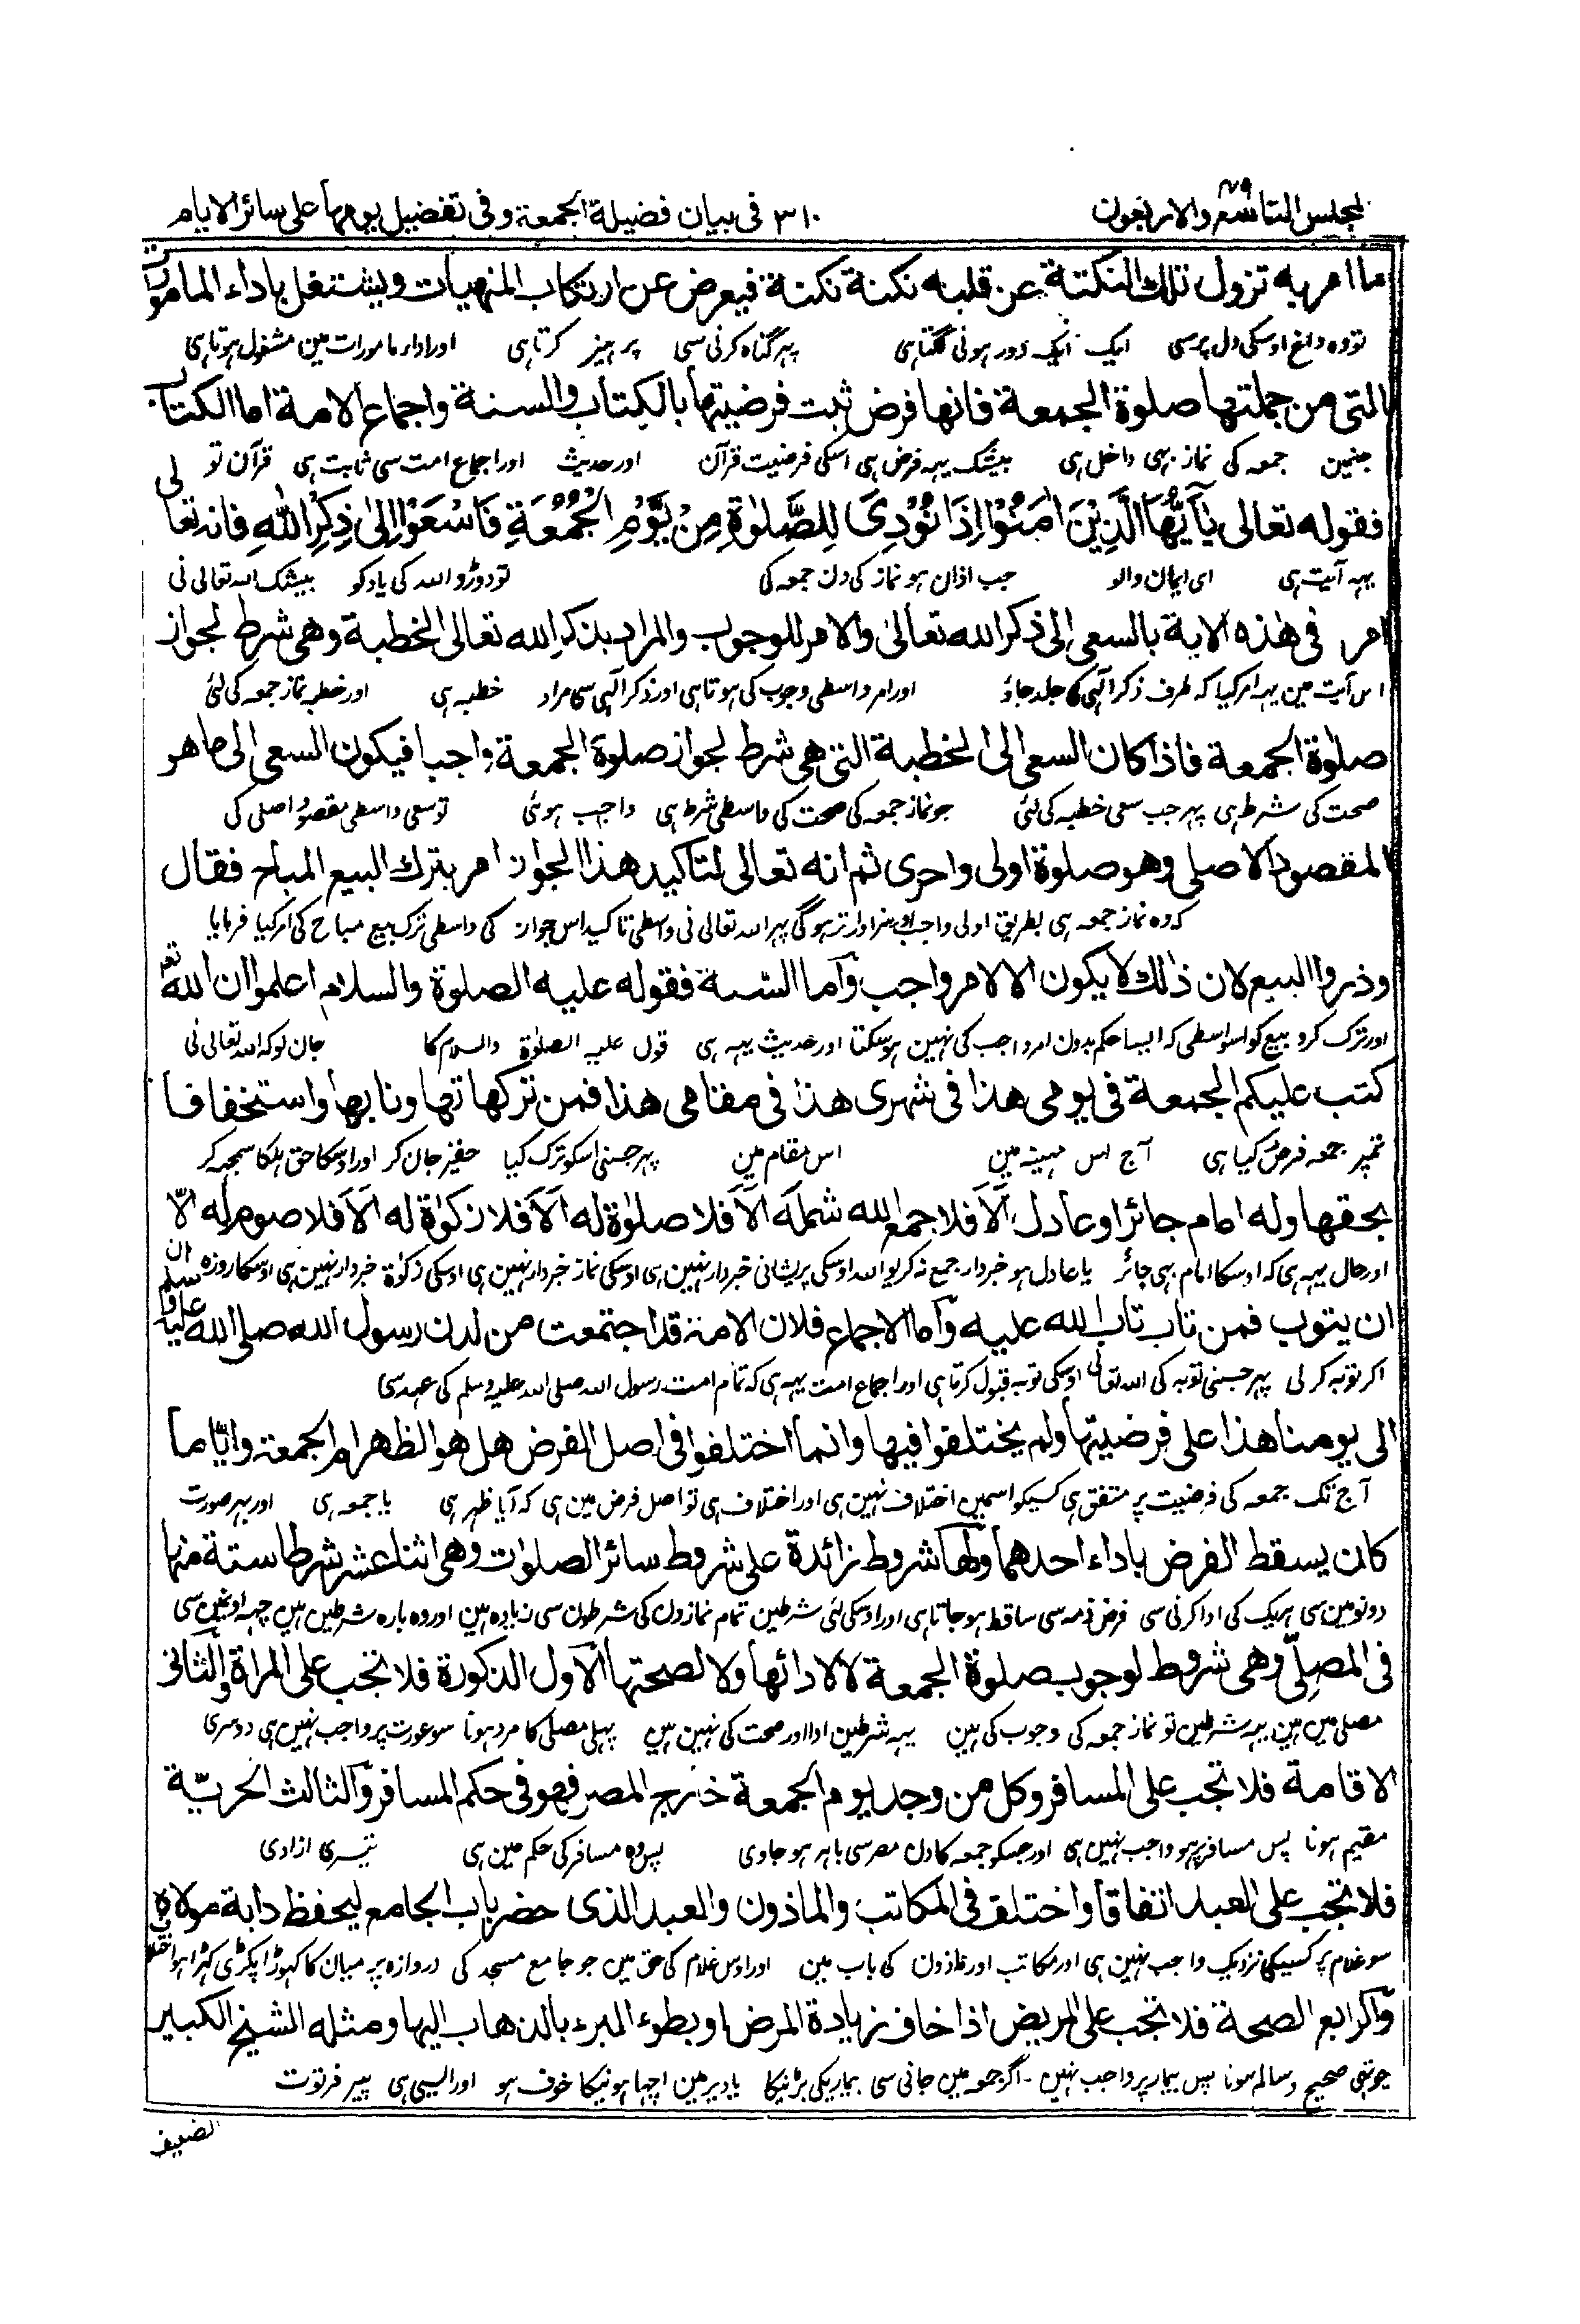 المجلس التاسع والاربعون ۴۹
۳۱۰ فی بیان فضیلة الجمعة وفی تفضیل یومها علی سائر الایام
ما امر به تزول تلك النكتة عن قلبه نكتة نكتة فیعرض عن ارتكاب المنهیات ویشتغل باداء المامورات
تو وه داغ اوسکی دل پرسی ایک ایک دور ہونی لگتا ہی پہر گناہ کرنی سی پرہیز کرتا ہی اور ادار مامورات مین مشغول ہوتا ہی
التی من جملتها صلوة الجمعة فانها فرض ثبت فرضیتها بالكتاب والسنة واجماع الامة اما الكتاب
جنمین جمعہ کی نماز بہی داخل ہی بیشک یہہ فرض ہی اسکی فرضیت قرآن اور حدیث اور اجماع امت سی ثابت ہی قرآن تو
فقوله تعالی یٰۤاَیُّهَا الَّذِیْنَ اٰمَنُوْا اِذَا نُوْدِیَ لِلصَّلٰوةِ مِنْ یَّوْمِ الْجُمُعَةِ فَاسْعَوْا اِلٰی ذِكْرِ اللّٰهِ فانه تعالی
یہہ آیت ہی ای ایمان والو جب اذان ہو نماز کی دن جمعہ کی تو دوڑو اللہ کی یاد کو بیشک اللہ تعالی نی
امر فی هذه الایة بالسعی الی ذكر الله تعالی والامر للوجوب والمراد بذكر الله تعالی الخطبة وهی شرط لجواز
اس آیت مین یہہ امر کیا کہ طرف ذکر الٰہی کی جلد جاؤ اور امر واسطی وجوب کی ہوتا ہی اور ذکر الٰہی سی مراد خطبہ ہی اور خطبہ نماز جمعہ کی لئی
صلوة الجمعة فاذا كان السعی الی الخطبة التی هی شرط لجواز صلوة الجمعة واجبا فیكون السعی الی ما هو
صحت کی شرط ہی پہر جب سعی خطبہ کی لئی جو نماز جمعہ کی صحت کی واسطی شرط ہی واجب ہوئی تو سعی واسطی مقصود اصلی کی
المقصود الاصلی وهو صلوة اولی واحری ثم انه تعالی لتاكید هذا الجواز امر بترك البیع المباح فقال
کہ وہ نماز جمعہ ہی بطریق اولی واجب اور سزاوار تر ہوگی پہر اللہ تعالی نی واسطی تاکید اس جواز کی واسطی ترک بیع مباح کی امر کیا فرمایا
وذروا البیع لان ذلك لا یكون الا لامر واجب واما السنة فقوله علیه الصلوة والسلام اعلموا ان الله تعالی
اور ترک کرو بیع کو اسواسطی کہ ایسا حکم بدون امر واجب کی نہین ہو سکتا اور حدیث یہہ ہی قول علیہ الصلوٰة والسلام کا جان لو کہ اللہ تعالی نی
كتب علیكم الجمعة فی یومی هذا فی شهری هذا فی مقامی هذا فمن تركها تهاونا بها واستخفافا
تمپر جمعہ فرض کیا ہی آج اس مہینہ مین اس مقام مین پہر جسنی اسکو ترک کیا حقیر جان کر اور اوسکا حق ہلکا سمجہہ کر
بحقها وله امام جائر او عادل الا فلا جمع الله شمله الا فلا صلوٰة له الا فلا زكوٰة له الا فلا صوم له الا
اور حال یہہ ہی کہ اوسکا امام بہی جائر یا عادل ہو خبردار جمع نہ کریو اللہ اوسکی پریشانی خبردار نہین ہی اوسکی نماز خبردار نہین ہی اوسکی زکوٰة خبردار نہین ہی اوسکا روزہ
ان یتوب فمن تاب تاب الله علیه واما الاجماع فلان الامة قد اجتمعت من لدن رسول الله صلی الله علیه وسلم
اکر توبہ کر لی پہر جسنی توبہ کی اللہ تعالی اوسکی توبہ قبول کرتا ہی اور اجماع امت یہہ ہی کہ تمام امت رسول اللہ صلی اللہ علیہ وسلم کی عہد سی
الی یومنا هذا علی فرضیتها ولم یختلفوا فیها وانما اختلفوا فی اصل الفرض هل هو الظهر ام الجمعة وایّاما
آج تک جمعہ کی فرضیت پر متفق ہی کسیکو اسمین اختلاف نہین ہی اور اختلاف ہی تو اصل فرض مین ہی کہ آیا ظہر ہی یا جمعہ ہی اور بہر صورت
كان یسقط الفرض باداء احدهما ولها شروط زائدة علی شروط سائر الصلوات وهی اثنا عشر شرطا ستة منها
دونومین سی ہریک کی ادا کرنی سی فرض ذمہ سی ساقط ہو جاتا ہی اور اوسکی لئی شرطین تمام نمازون کی شرطون سی زیادہ ہین اور وہ بارہ شرطین ہین چہہ اونمین سی
فی المصلّی وهی شروط لوجوب صلوة الجمعة لا لادائها ولا لصحتها الاول الذكورة فلا تجب علی المراة والثانی
مصلی مین ہین یہہ شرطین تو نماز جمعہ کی وجوب کی ہین یہہ شرطین ادا اور صحت کی نہین ہین پہلی مصلی کا مرد ہونا سو عورت پر واجب نہین ہی دوسری
الاقامة فلا تجب علی المسافر وكل من وجد یوم الجمعة خارج المصر فهو فی حكم المسافر والثالث الحریّة
مقیم ہونا پس مسافر پر واجب نہین ہی اور جسکو جمعہ کا دن مصر سی باہر ہو جاوی پس وہ مسافر کی حکم مین ہی تیسری ازادی
فلا تجب علی العبد اتفاقا واختلف فی المكاتب والماذون والعبد الذی حضر باب الجامع لیحفظ دابة مولاه
سو غلام پر کسیکی نزدیک واجب نہین ہی اور مکاتب اور ماذون کی باب مین اور اوس غلام کی حق مین جو جامع مسجد کی دروازہ پر میان کا گہوڑا پکڑی کہڑا ہو اختلاف
والرابع الصحة فلا تجب علی المریض اذا خاف زیادة المرض او بطوء البرء بالذهاب الیها ومثله الشیخ الكبیر
چوتہی صحیح وسالم ہونا پس بیمار پر واجب نہین اگر جمعہ مین جانی سی بیماریکی بڑہنیکا یا دیر مین اچہا ہونیکا خوف ہو اور ایسی ہی پیر فرتوت
الضعیف